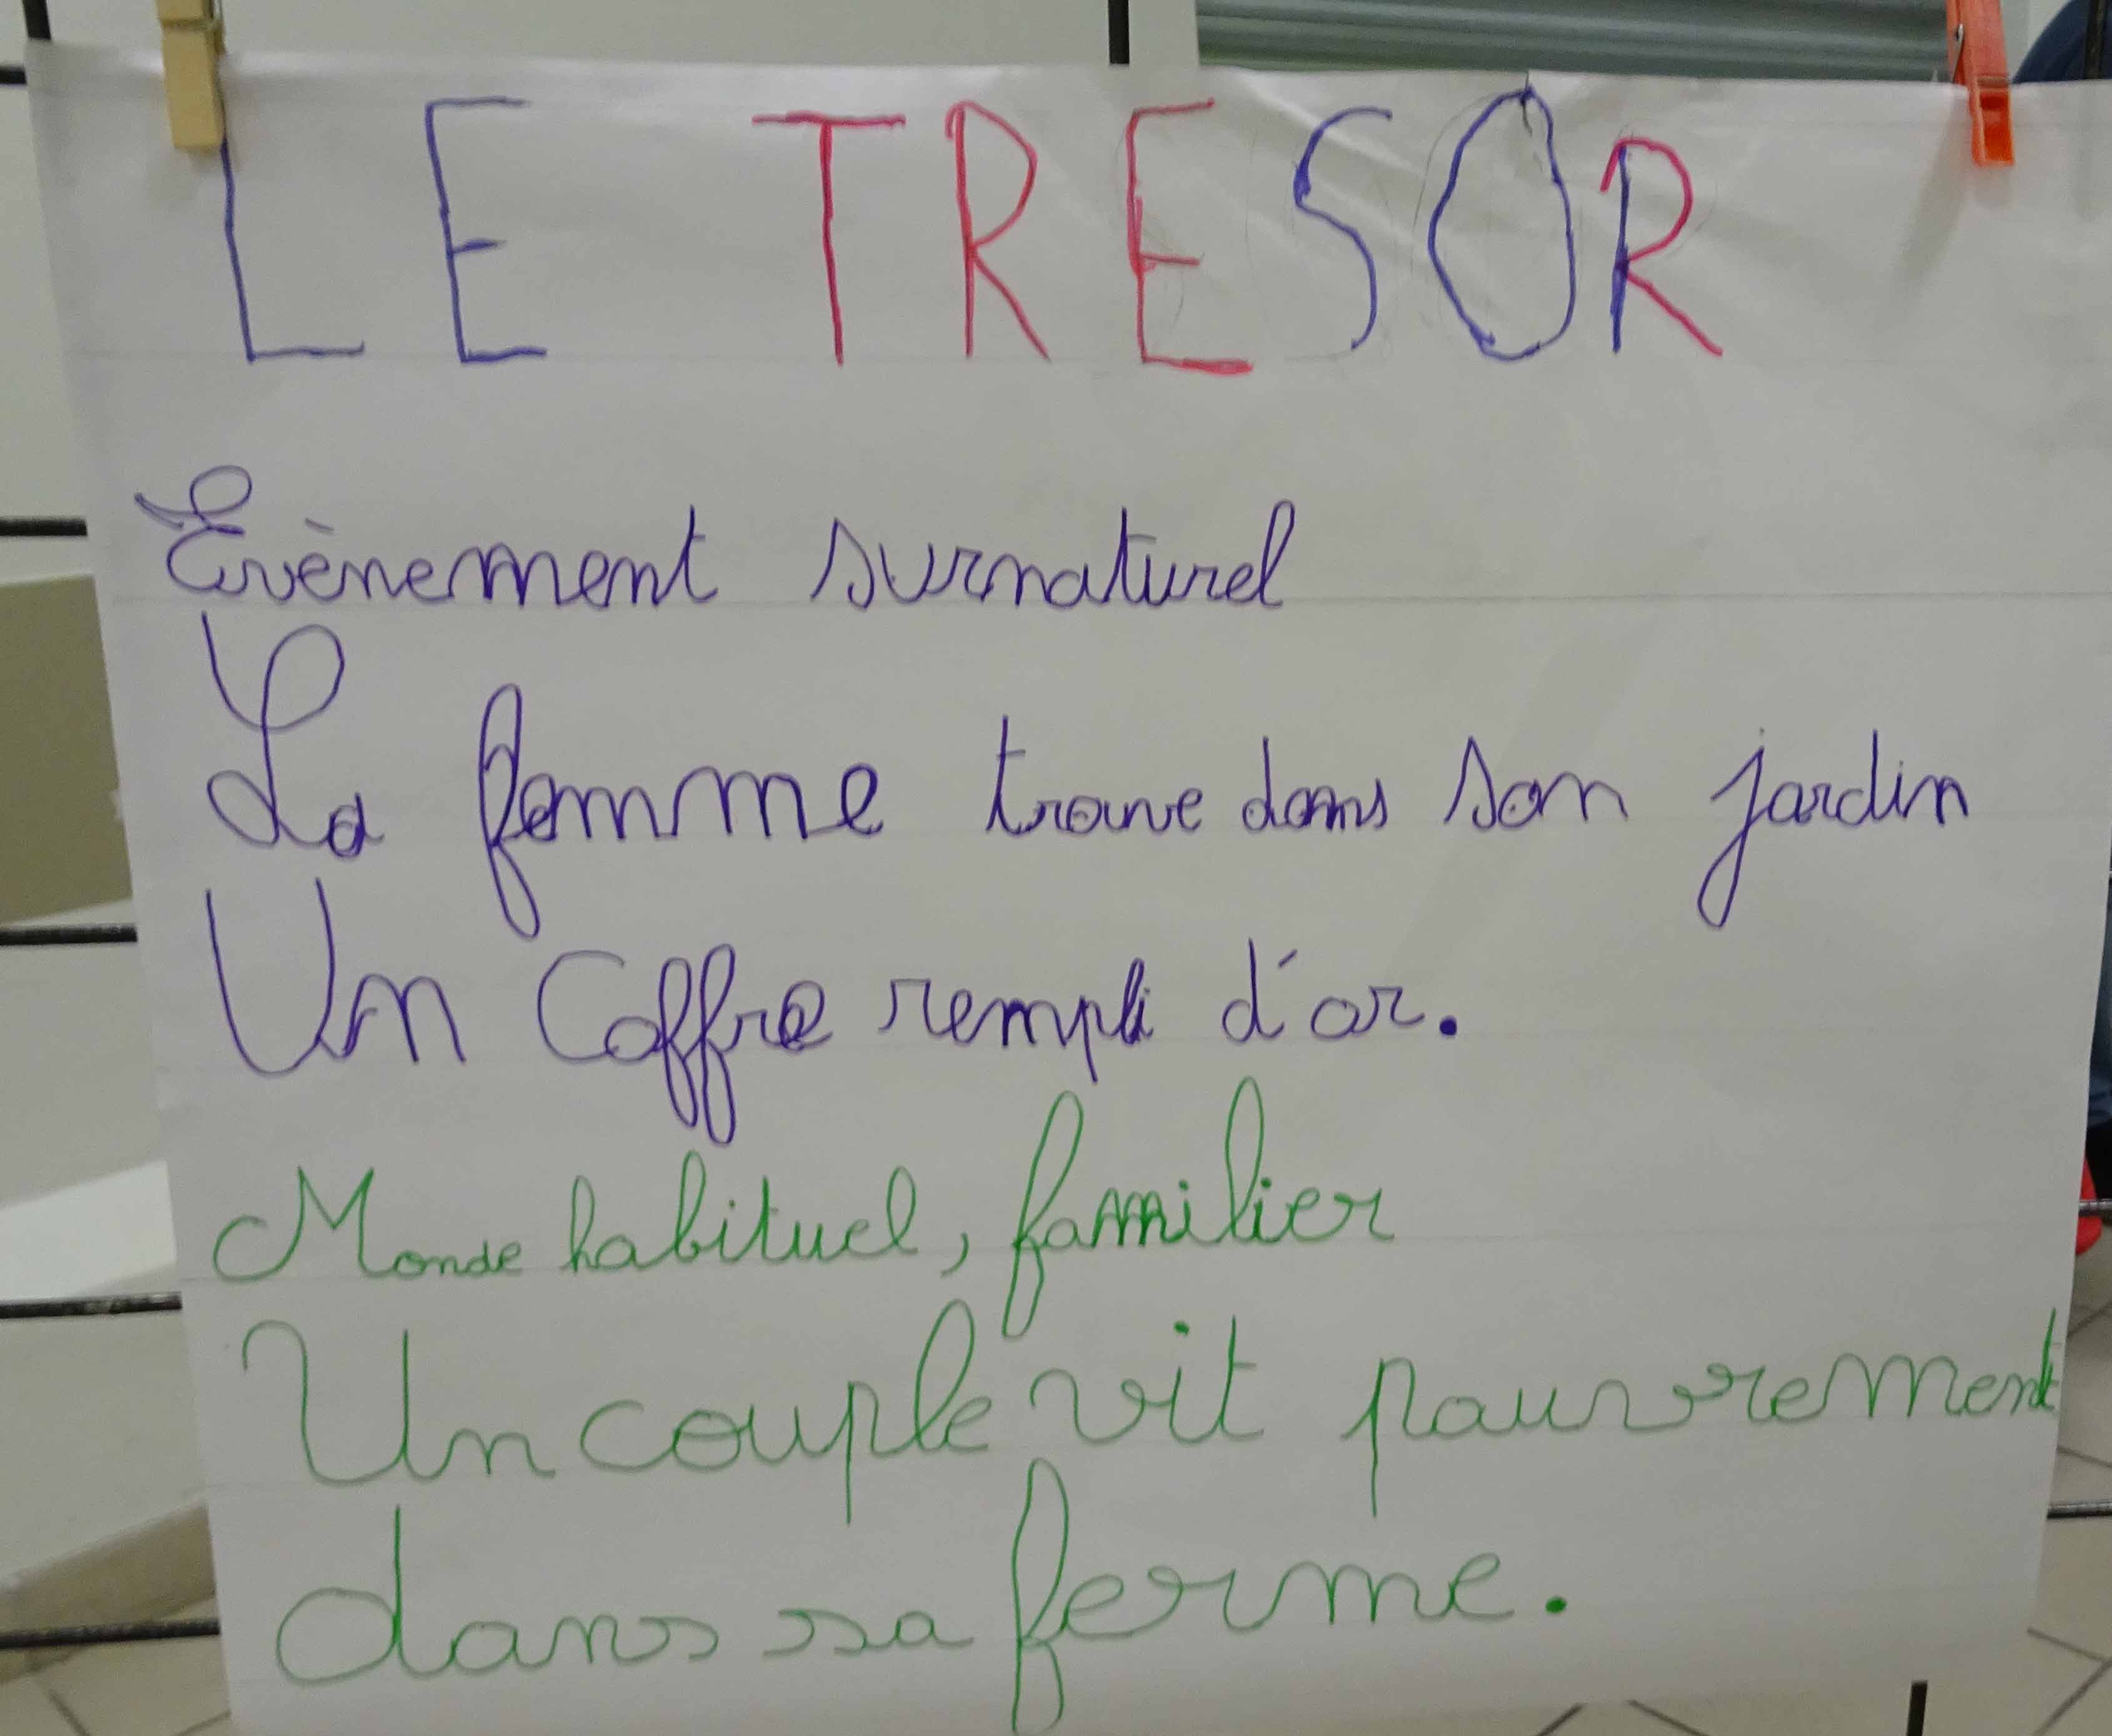 LE TRESOR
Evènement surnaturel
La femme trouve dans son jardin
Un Coffre rempli d'or.
Monde habituel, familier
Un couple vit pauvrement
dans sa ferme.